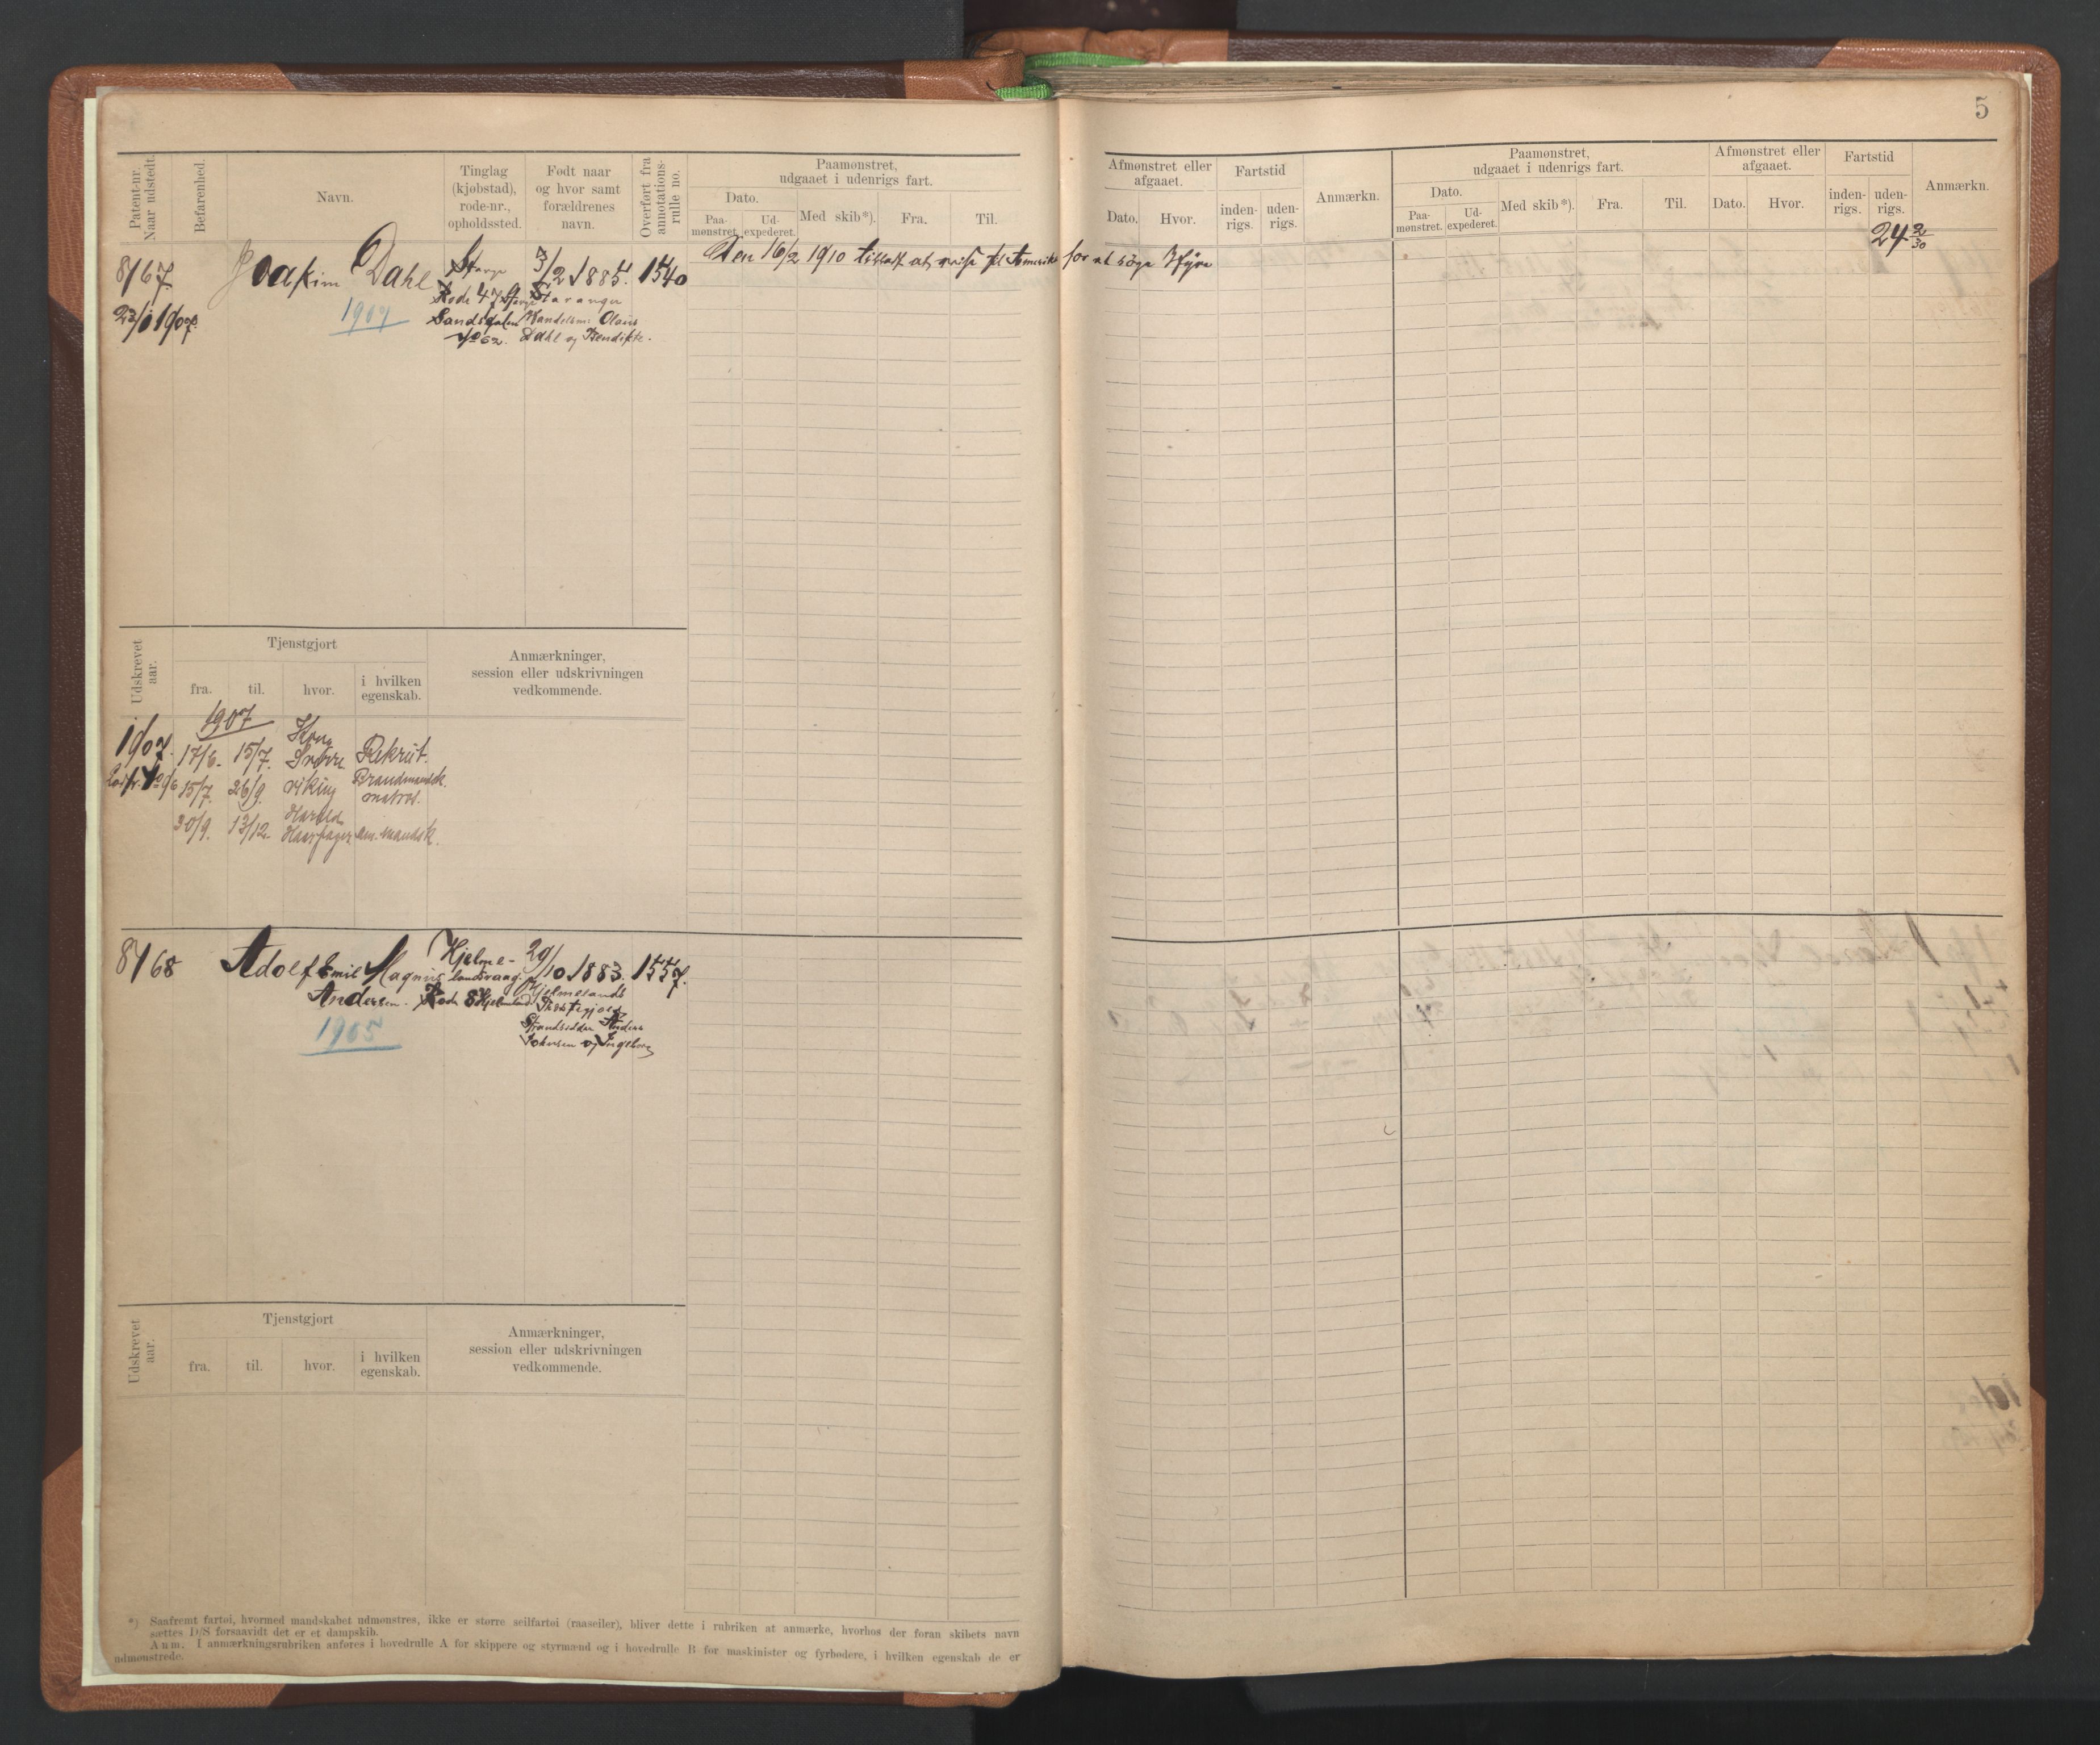 5
Patent-nr.
Naar udstedt.
Befarenhed.
Navn.
Tinglag
(kjøbstad),
rode-nr.,
opholdssted.
Født naar
og hvor samt
forældrenes
navn.
Overført fra
annotations-
rulle no.
Paamønstret,
udgaaet i udenrigs fart.
Dato.
Paa-
mønstret.
Ud-
expederet.
Med skib*).
Fra.
Til.
Afmønstret eller
afgaaet.
Dato.
Hvor.
Fartstid
inden-
rigs.
uden-
rigs.
Anmærkn.
Paamønstret,
udgaaet i udenrigs fart.
Dato.
Paa-
mønstret.
Ud-
expederet.
Med skib*).
Fra.
Til.
Afmønstret eller
afgaaet.
Dato.
Hvor.
Fartstid
inden-
rigs.
uden-
rigs.
Anmærkn.
24 2/30
8167
Joakim Dahl
1907
Rode 47
No 62.
3/2 1885.
Stavanger
Olaus
Dahl og Bendikte.
1540
Den 16/2 1910 tilladt at reise til Amerika for at søge Hyre
Udskrevet
aar.
Tjenstgjort
fra.
til.
hvor.
i hvilken
egenskab.
Anmærkninger,
session eller udskrivningen
vedkommende.
1907
1907.
17/6. 15/7. Rekrut.
15/7. 26/9. Viking
30/9. 13/12. Harald
Haarfager
8168
Adolf Emil Magnus
Andersen.
1905
Hjelme-
landsvaag.
Rode 8 Hjelmeland
29/10 1883.
Hjelmelands
Præstegjæld
Strandsidder
og Ingeborg
1557.
Udskrevet
aar.
Tjenstgjort
fra.
til.
hvor.
i hvilken
egenskab.
Anmærkninger,
session eller udskrivningen
vedkommende.
*) Saafremt fartøi, hvormed mandskabet udmønstres, ikke er større seilfartøi (raaseiler), bliver dette i rubriken at anmærke, hvorhos der foran skibets navn
sættes D/S forsaavidt det er et dampskib.
Anm. I anmærkningsrubriken anføres i hovedrulle A for skippere og styrmænd og i hovedrulle B for maskinister og fyrbødere, i hvilken egenskab de er
udmønstrede.